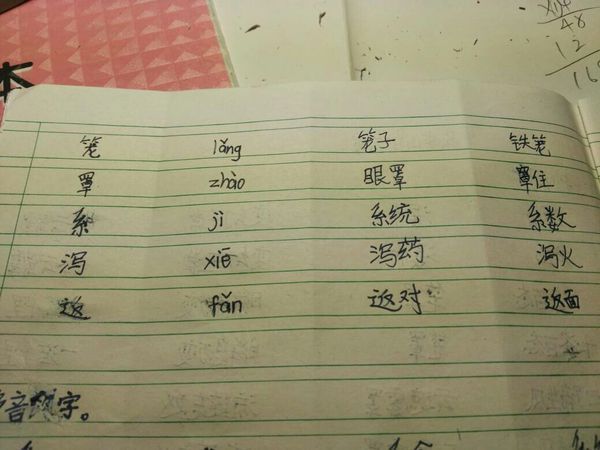 本
48
12
笼 lǎng 笼子 铁笼
罩 zhào 眼罩 罩住
系 jì 系统 系数
泻 xiē 泻药 泻火
返 fǎn 返对 返面
音 字。